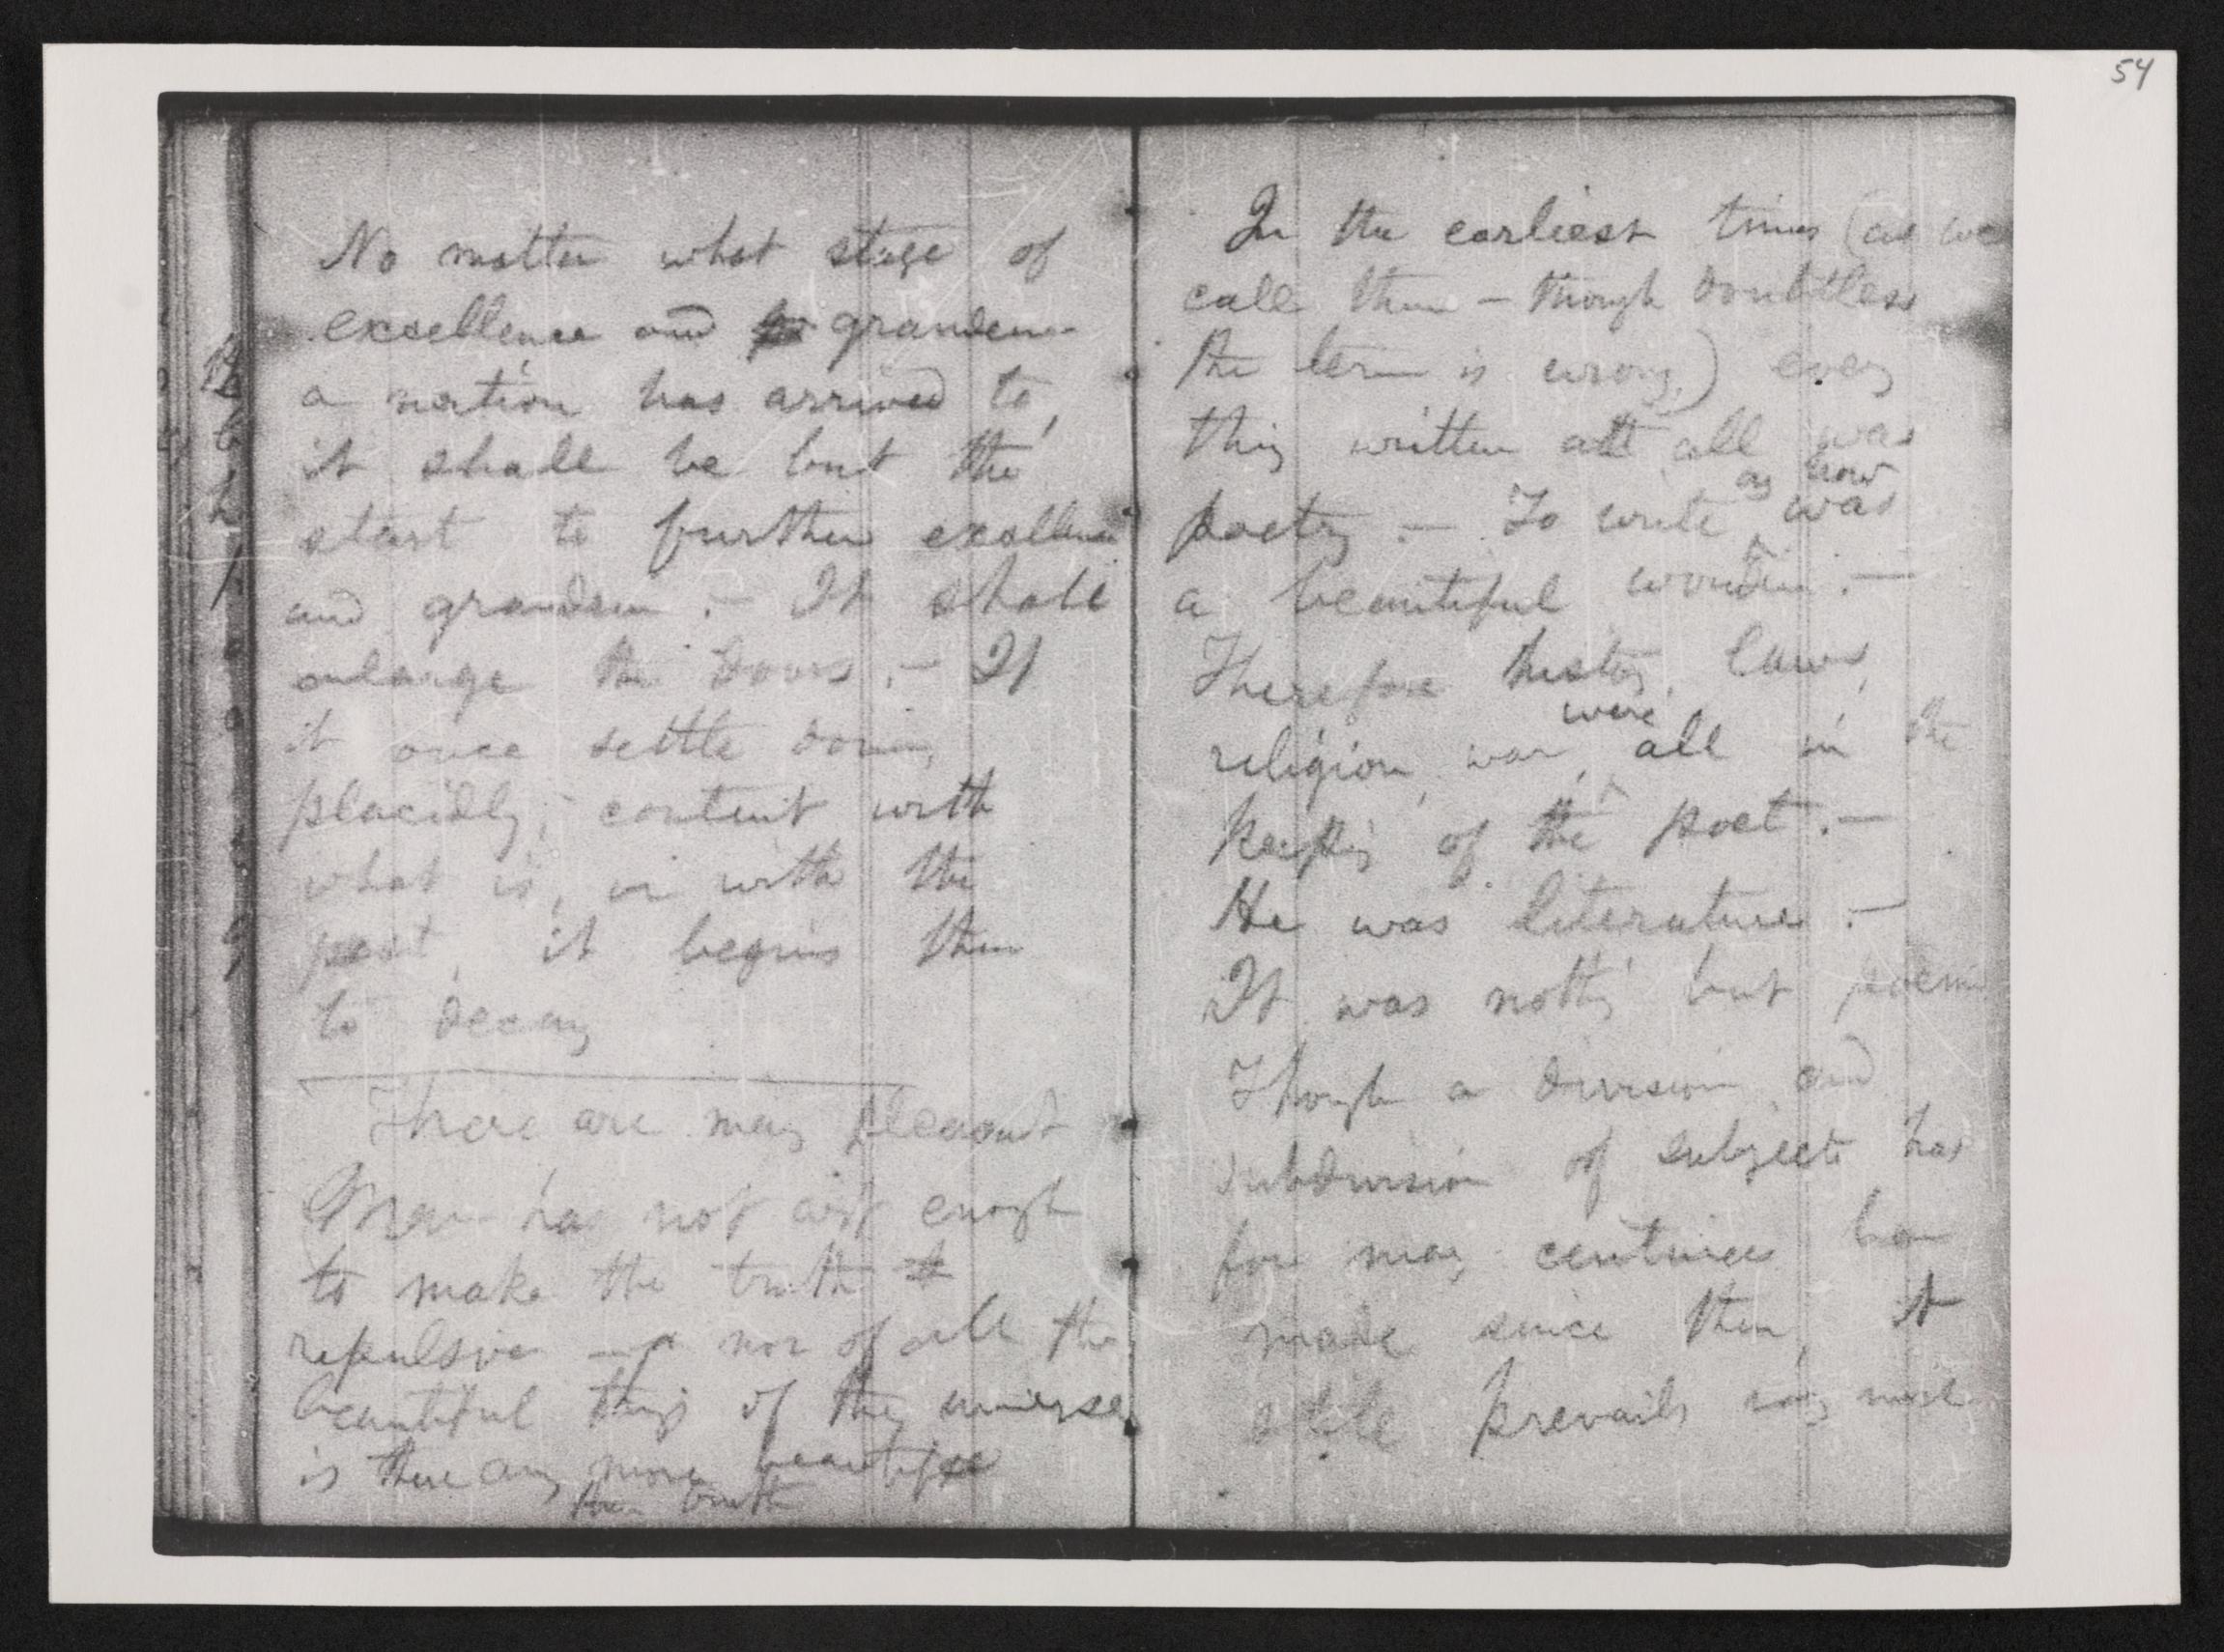 54
No matter what stage of
excellence and grandeur
a nation has arrived to,
it shall be but the
start to further excellence
and grandeur. — It shall
enlarge the doors. — If
it once settle down,
placidly, content with
what is, or with the
past, it begins then
to decay
There are many pleasant
Man has not art enough
to make the truth
repulsive — nor of all the
beautiful things of the universe
is there any more beautiful
than truth
In the earliest times (as we
call them — though doubtless
the term is wrong,) every
thing written at all was
poetry. — To write as now was
a beautiful wonder. —
Therefore history, laws,
religion, war, were all in the
keeping of the poet. —
He was literature. —
It was nothing but poems
Though a division and
subdivision of subjects has
for many centuries been
made since then, it
still prevails very much